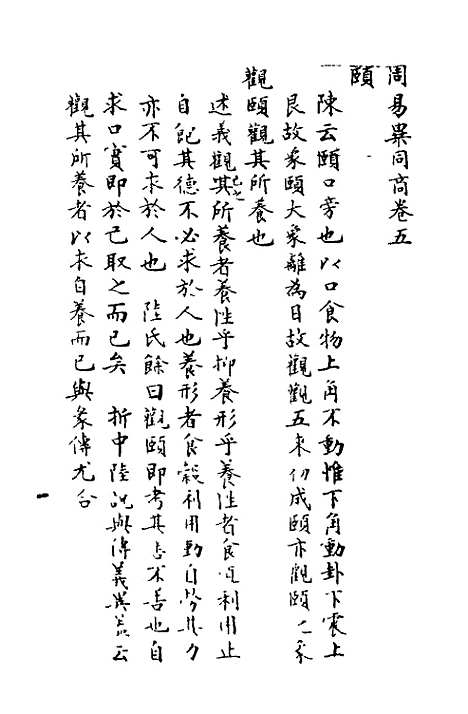 周易異同商卷五
頤
陳云頤口旁也以口食物上角不動惟下角動卦下震上
艮故象頤大象離為目故觀觀五來初成頤亦觀頤之象
觀頤觀其所養也
述義觀其所養者養性乎抑養形乎養性者食道利用止
自飽其德不必求於人也養形者食穀利用動自勞其力
亦不可求於人也 陸氏餘曰觀頤即考其善不善也自
求口實即於己取之而已矣 折中陸說與傳義異蓋云
觀其所養者以求自養而已與彖傳尤合
一